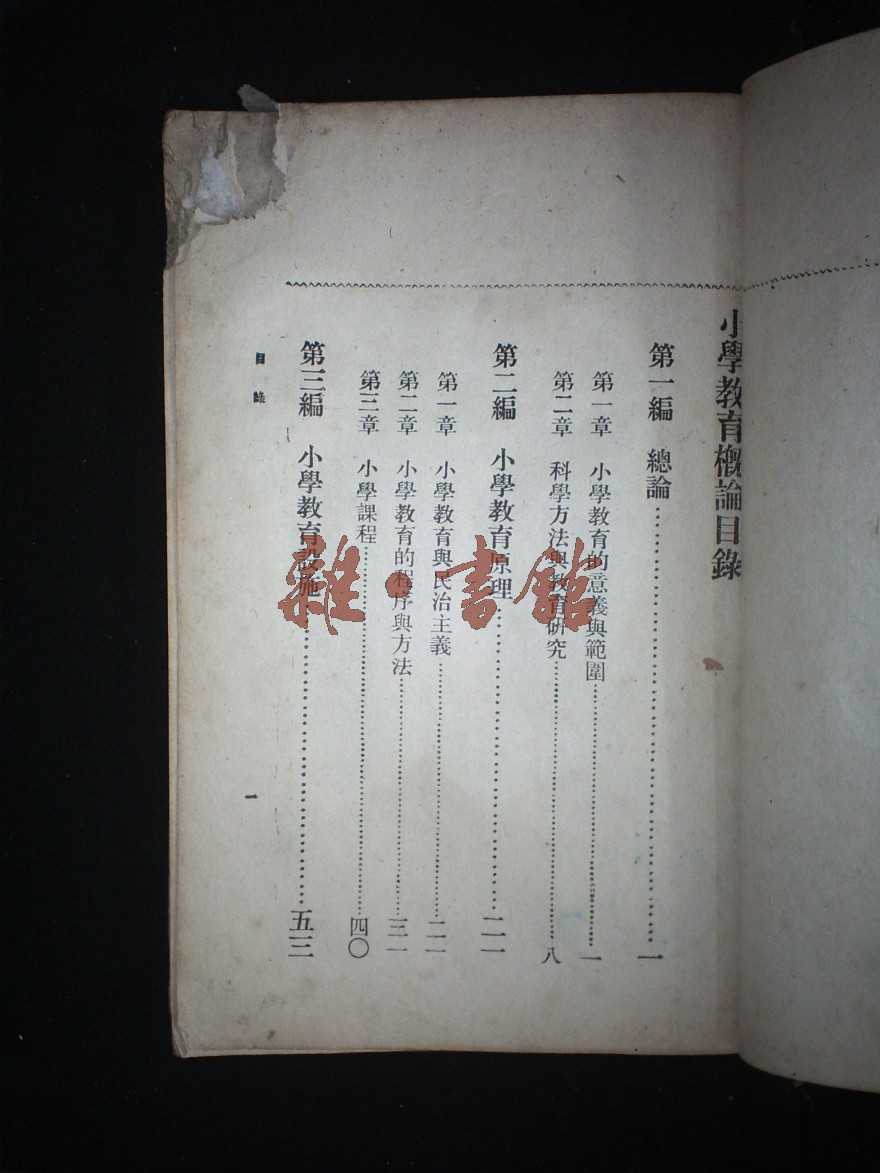 小學教育概論目錄
第一編　總論……一
第一章　小學教育的意義與範圍……一
第二章　科學方法與教育研究……八
第二編　小學教育原理……二一
第一章　小學教育與民治主義……二一
第二章　小學教育的程序與方法……三一
第三章　小學課程……四〇
第三編　小學教育設施……五三
目錄
一
雜·書館